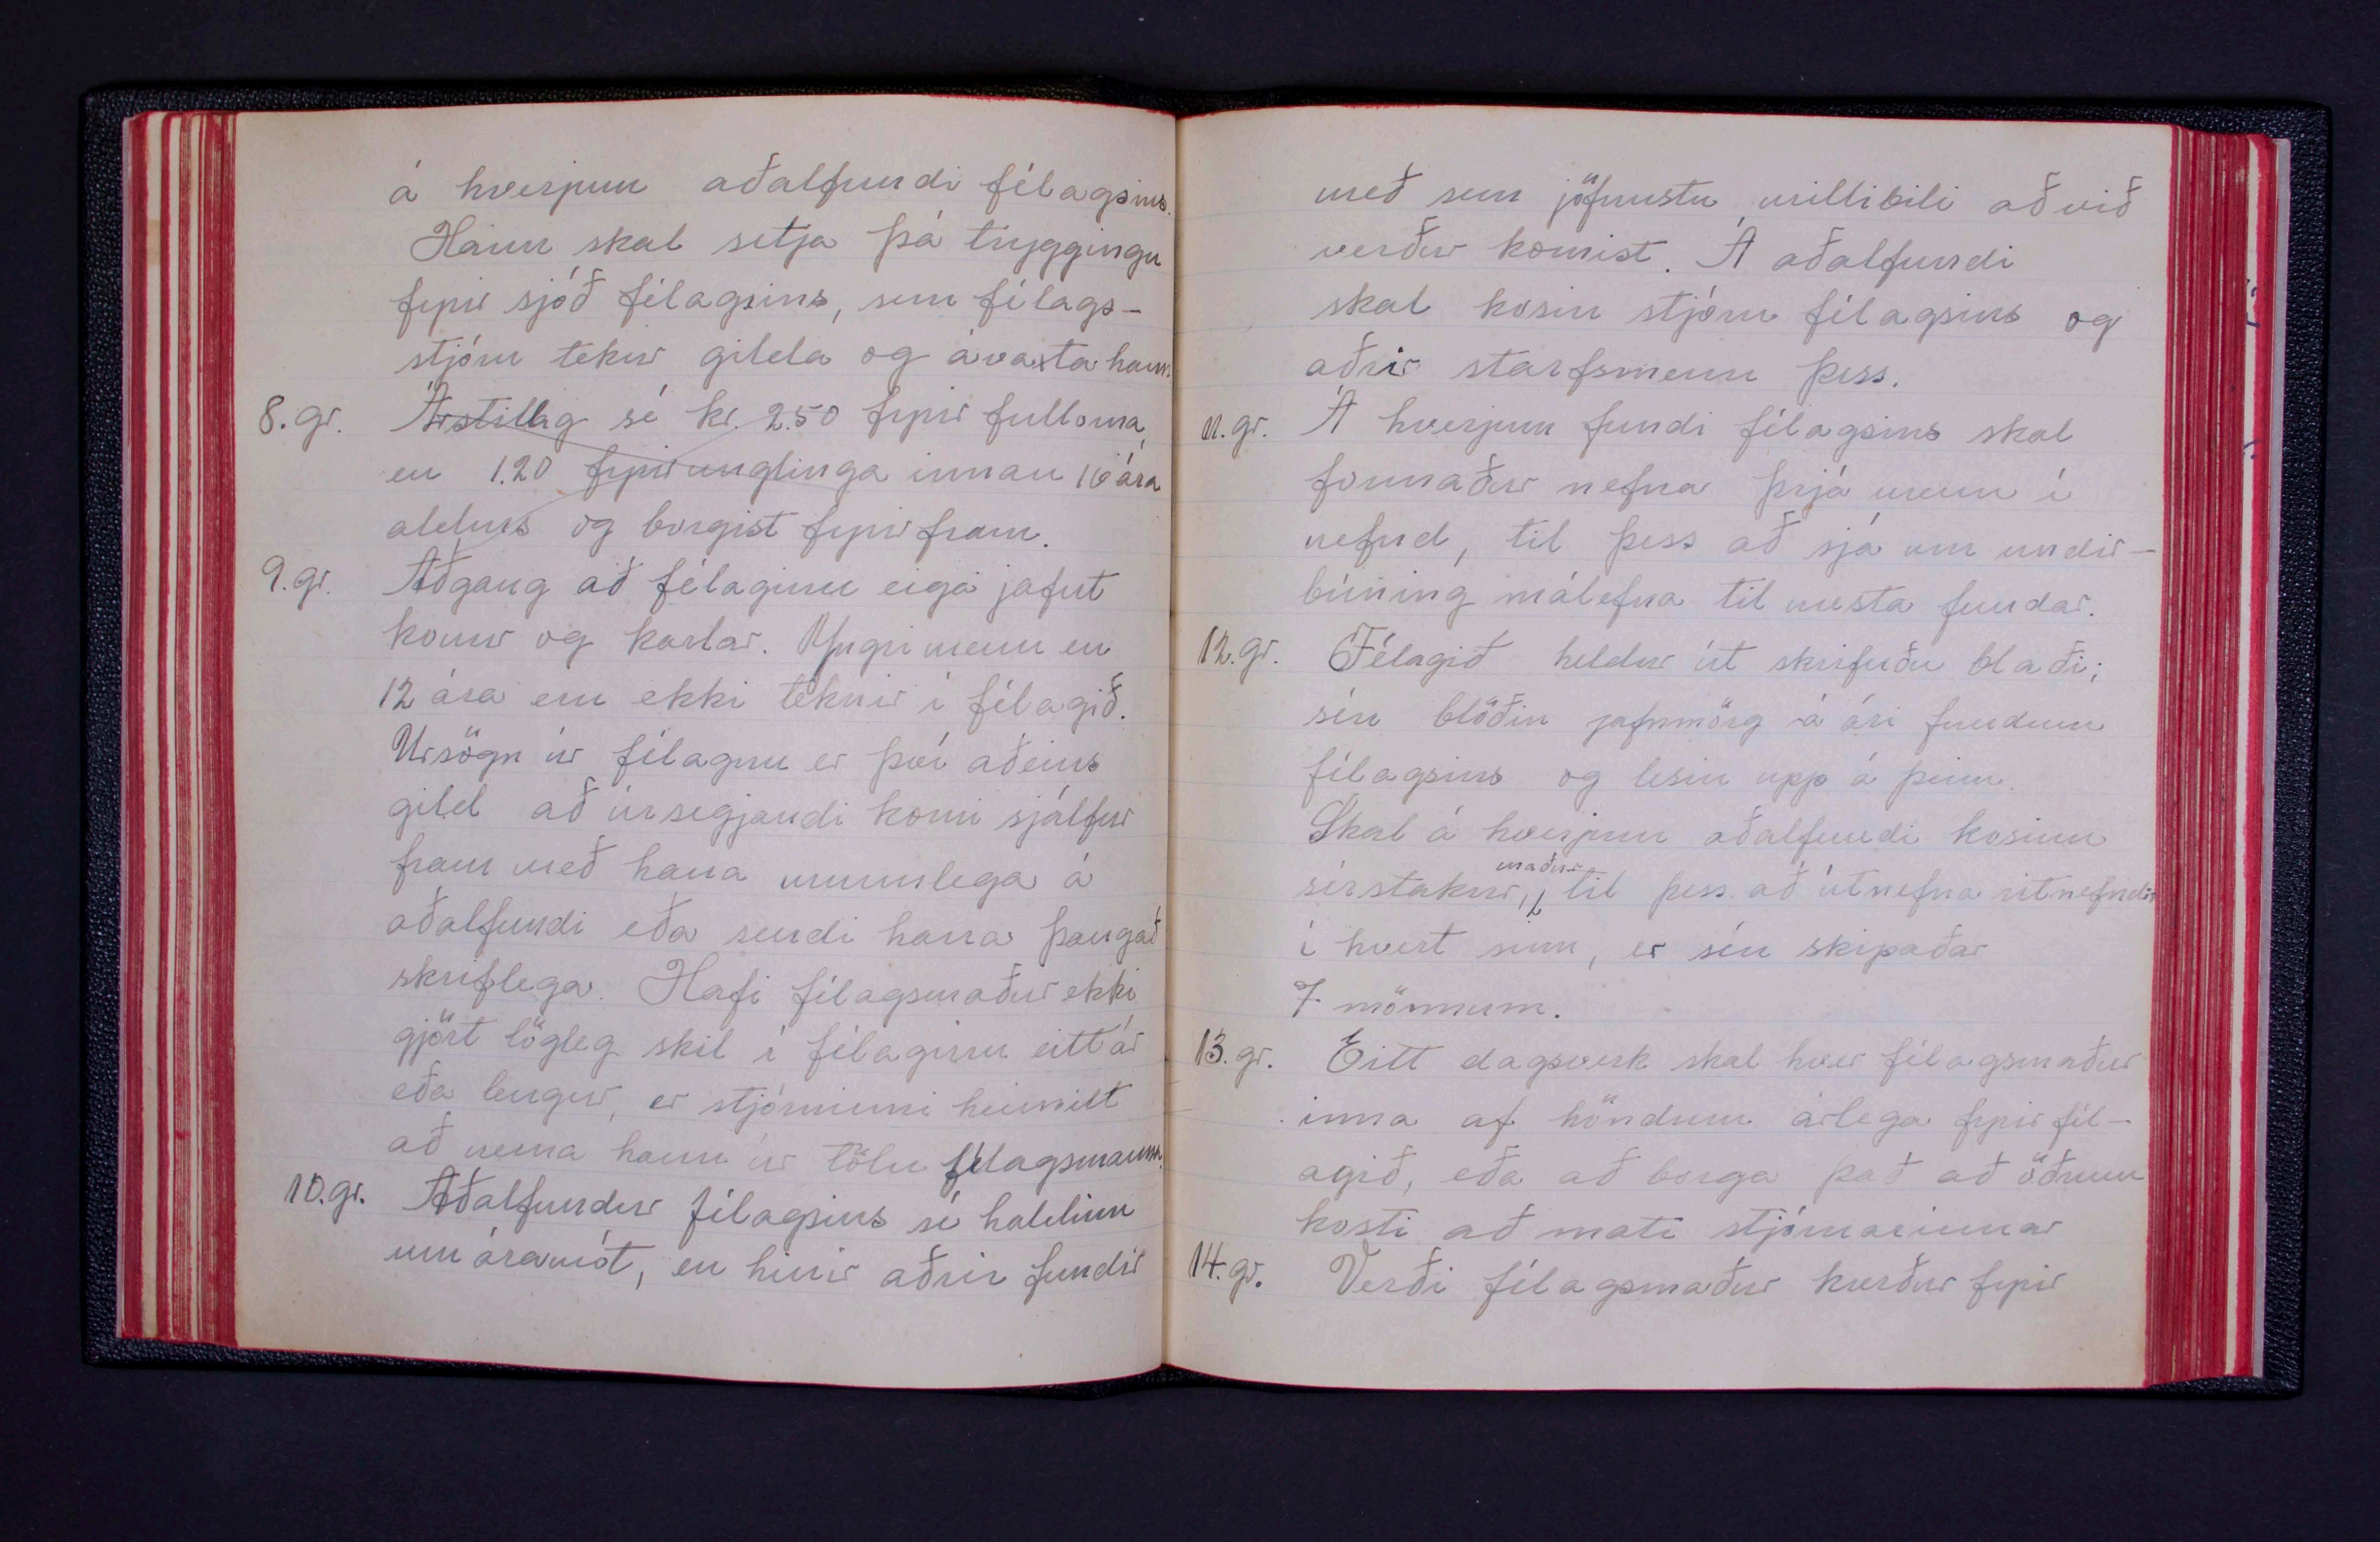 á hverjum aðalfundi félagsins.
Hann skal setja þá tryggingu
fyrir sjóð félagsins, sem félags-
stjórn tekur gilda og ávaxta hann.
8. gr. Árstillag sé kr. 2.50 fyrir fullorna,
en 1.20 fyrir unglinga innan 16 ára
aldurs og borgist fyrirfram.
9. gr. Aðgang að félaginu eiga jafnt
konur og karlar. Yngri menn en
12 ára eru ekki teknir í félagið.
Ursögn úr félaginu er því aðeins
gild að úrsegjandi komi sjálfur
fram með hana munnlega á
aðalfundi eða sendi hana þangað
skriflega. Hafi félagsmaður ekki
gjört lögleg skil í félaginu eitt ár
eða lengur, er stjórninni heimilt
að nema hann úr tölu félagsmanna.
10. gr. Aðalfundur félagsins sé haldinn
um áramót, en hinir aðrir fundir
með sem jöfnustu millibili að við
verður komist. Á aðalfundi
skal kosin stjórn félagsins og
aðrir starfsmenn þess.
11. gr. Á hverjum fundi félagsins skal
formaður nefna þrjá menn í
nefnd, til þess að sjá um undir-
búning málefna til næsta fundar.
12. gr. Félagið heldur út skrifuðu blaði;
séu blöðin jafnmörg á ári fundum
félagsins og lesin upp á þeim.
Skal á hverjum aðalfundi kosinn
maður
sérstakur, til þess að útnefna ritnefndir
í hvert sinn, er séu skipaðar
7 mönnum.
13. gr. Eitt dagsverk skal hver félagsmaður
inna af höndum árlega fyrir fél-
agið, eða að borga það að öðrum
kosti að mati stjórnarinnar
14. gr. Verði félagsmaður kærður fyrir